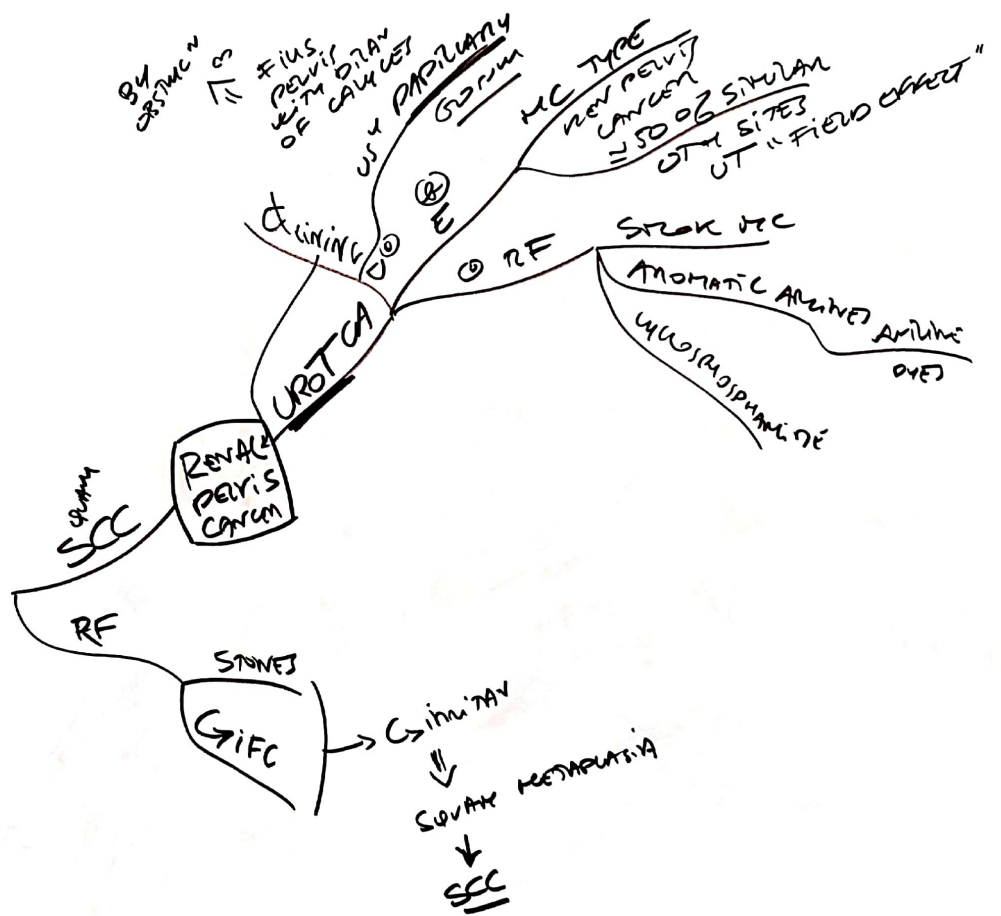 RENAL
PELVIS
CANCER
UROT CA
LINING
US 4 PAPILLARY
GROWTH
FILLS
PELVIS
WITH DILAN
OF CALYCES
BY
OBSTRUC^N
E
MC TYPE
REN PELVIS
CANCER
≅ 50% SIMILAR
OTH SITES
UT "FIELD EFFECT"
RF
SMOK MC
AROMATIC AMINES
ANILINE
DYES
CYCLOSPHOSPHAMIDE
SQUAM
SCC
RF
STONES
IFC
IRRITAN
SQUAM METAPLASIA
SCC